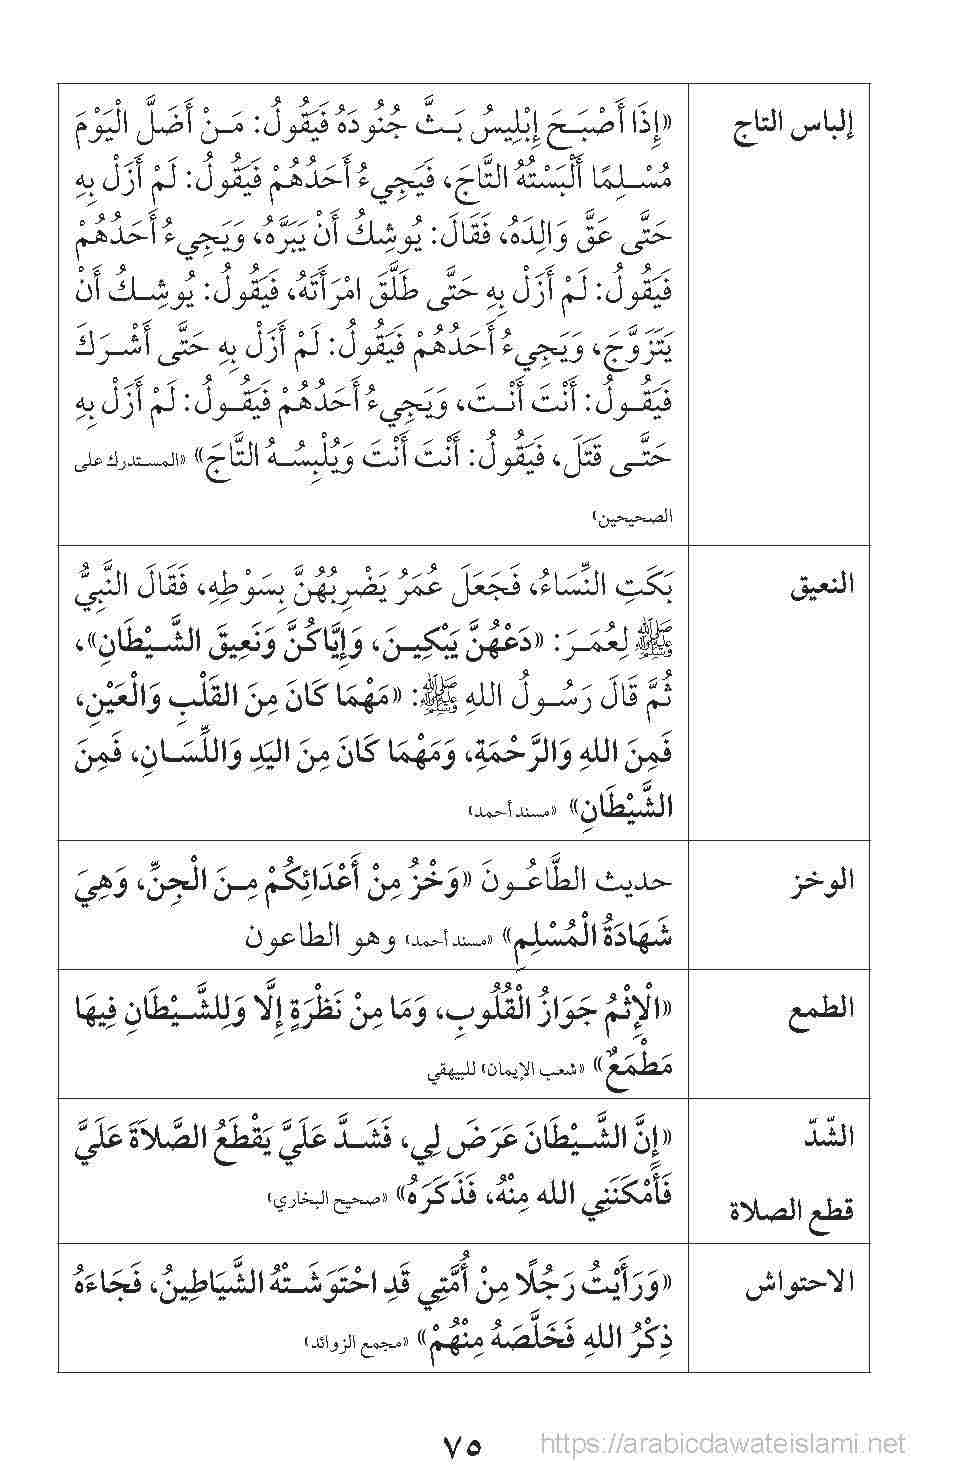 إلباس التاج
«إِذَا أَصْبَحَ إِبْلِيسُ بَثَّ جُنُودَهُ فَيَقُولُ: مَنْ أَضَلَّ الْيَوْمَ
مُسْلِمًا أَلْبَسْتُهُ التَّاجَ، فَيَجِيءُ أَحَدُهُمْ فَيَقُولُ: لَمْ أَزَلْ بِهِ
حَتَّى عَقَّ وَالِدَهُ، فَقَالَ: يُوشِكُ أَنْ يَبَرَّهُ، وَيَجِيءُ أَحَدُهُمْ
فَيَقُولُ: لَمْ أَزَلْ بِهِ حَتَّى طَلَّقَ امْرَأَتَهُ، فَيَقُولُ: يُوشِكُ أَنْ
يَتَزَوَّجَ، وَيَجِيءُ أَحَدُهُمْ فَيَقُولُ: لَمْ أَزَلْ بِهِ حَتَّى أَشْرَكَ
فَيَقُولُ: أَنْتَ أَنْتَ، وَيَجِيءُ أَحَدُهُمْ فَيَقُولُ: لَمْ أَزَلْ بِهِ
حَتَّى قَتَلَ، فَيَقُولُ: أَنْتَ أَنْتَ وَيُلْبِسُهُ التَّاجَ» «المستدرك على
الصحيحين»
النعيق
بَكَتِ النِّسَاءُ، فَجَعَلَ عُمَرُ يَضْرِبُهُنَّ بِسَوْطِهِ، فَقَالَ النَّبِيُّ
ﷺ لِعُمَرَ: «دَعْهُنَّ يَبْكِينَ، وَإِيَّاكُنَّ وَنَعِيقَ الشَّيْطَانِ»،
ثُمَّ قَالَ رَسُولُ اللهِ ﷺ: «مَهْمَا كَانَ مِنَ القَلْبِ وَالْعَيْنِ،
فَمِنَ اللهِ وَالرَّحْمَةِ، وَمَهْمَا كَانَ مِنَ اليَدِ وَاللِّسَانِ، فَمِنَ
الشَّيْطَانِ» «مسند أحمد»
الوخز
حديث الطَّاعُونَ «وَخْزُ مِنْ أَعْدَائِكُمْ مِنَ الْجِنِّ، وَهِيَ
شَهَادَةُ الْمُسْلِمِ» «مسند أحمد» وهو الطاعون
الطمع
«الْإِثْمُ جَوَازُ الْقُلُوبِ، وَمَا مِنْ نَظْرَةٍ إِلَّا وَلِلشَّيْطَانِ فِيهَا
مَطْمَعٌ» «شعب الإيمان» للبيهقي
الشّدّ
قطع الصلاة
«إِنَّ الشَّيْطَانَ عَرَضَ لِي، فَشَدَّ عَلَيَّ يَقْطَعُ الصَّلاَةَ عَلَيَّ
فَأَمْكَنَنِي الله مِنْهُ، فَذَكَرَهُ» «صحيح البخاري»
الاحتواش
«وَرَأَيْتُ رَجُلًا مِنْ أُمَّتِي قَدِ احْتَوَشَتْهُ الشَّيَاطِينُ، فَجَاءَهُ
ذِكْرُ اللهِ فَخَلَّصَهُ مِنْهُمْ» «مجمع الزوائد»
٧٥
https://arabicdawateislami.net